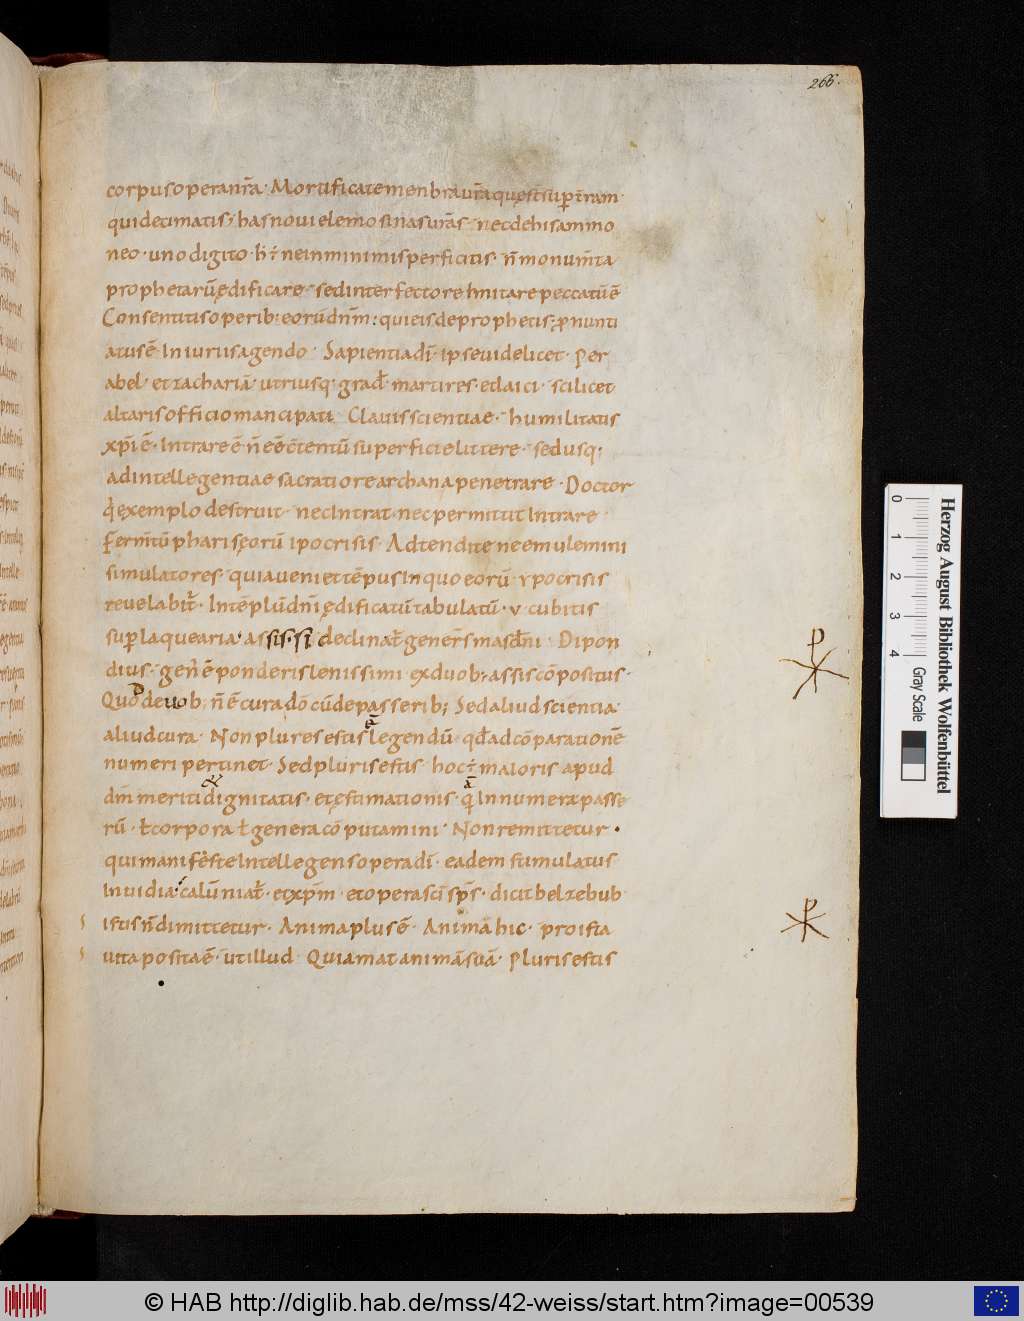 266.
corpus operanr̄a· Mortificate menbra ur̄a quę st̄ sup̄ t̄ram·
qui decimatis· has noui elemosinas ur̄as· nec de hisammo
neo· uno digito· h̄· ne in minimis perficitis· n̄ monum̄ta
prophetarū ędificare· sed interfectore Imitare peccatū ē
Consentitis operib: eorū dn̄m: qui eis de prophetis; p̄nunti
atus ē In iuriis agendo· Sapientia dī· ipse uidelicet· Per
abel· et zachariā· utriusq· grad̄· martires· et laici· scilicet
altaris officio mancipati Clauis scientiae· humilitatis
xp̄i ē· Intrare ē n̄ eē c̄tentū superficie littere· sed usq;
ad intellegentiae sacratiore archana penetrare· Doctor
q̇ exemplo destruit· nec Intrat· nec permittit Intrare·
Ferm̄tū phariseorū ipocrisis· Adtendite ne emulemini
simulatores· quia ueniet tēpus In quo eorū· ypocrisis
reuelabit̄· In tēplū dn̄i ędificatū tabulatū· v cubitis
sup̄ laquearia· assis· si declinat̄ gener̄s masc̄ni· Dipon
dius· gen̄ ē ponderis lenissimi ex duob; assis cōpositus·
Quod de uob; n̄ ē cura dō cū de passerib; Sed aliud scientia·
aliud cura· Non plures estis legendū· qd̄ ad cōparationē
numeri pertinet· Sed pluris estis· hoc ÷ maioris apud
dm̄ meriti dignitatis· et estimationis· q̄ Innumera passe
rū· ł corpora ł genera cōputamini· Non remittetur·
qui manifeste Intellegens opera dī· eadem stimulatus
Inuidia· calūniat̄· et xp̄m· et opera sc̄i sp̄s· dicit belzebub
istis n̄ dimittetur· Anima plus ē· Animā hic· pro ista
uita posita ē· ut illud· Qui amat animā suā· Pluris estis
0 1 2 3 4
Gray Scale
Herzog August Bibliothek Wolfenbüttel
© HAB http://diglib.hab.de/mss/42-weiss/start.htm?image=00539